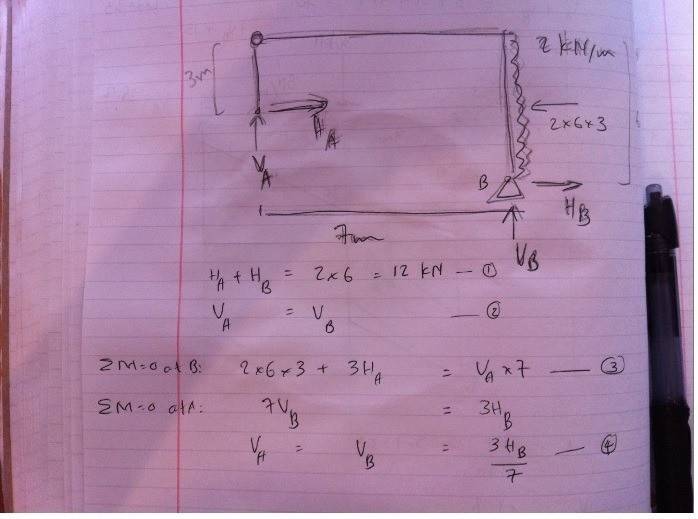 2 kN/m
3m
2×6×3
H_A
V_A
B
H_B
7m
V_B
H_A + H_B = 2×6 = 12 kN — ①
V_A = V_B — ②
ΣM=0 at B: 2×6×3 + 3H_A = V_A × 7 — ③
ΣM=0 at A: 7V_B = 3H_B
V_A = V_B = 3H_B/7 — ④